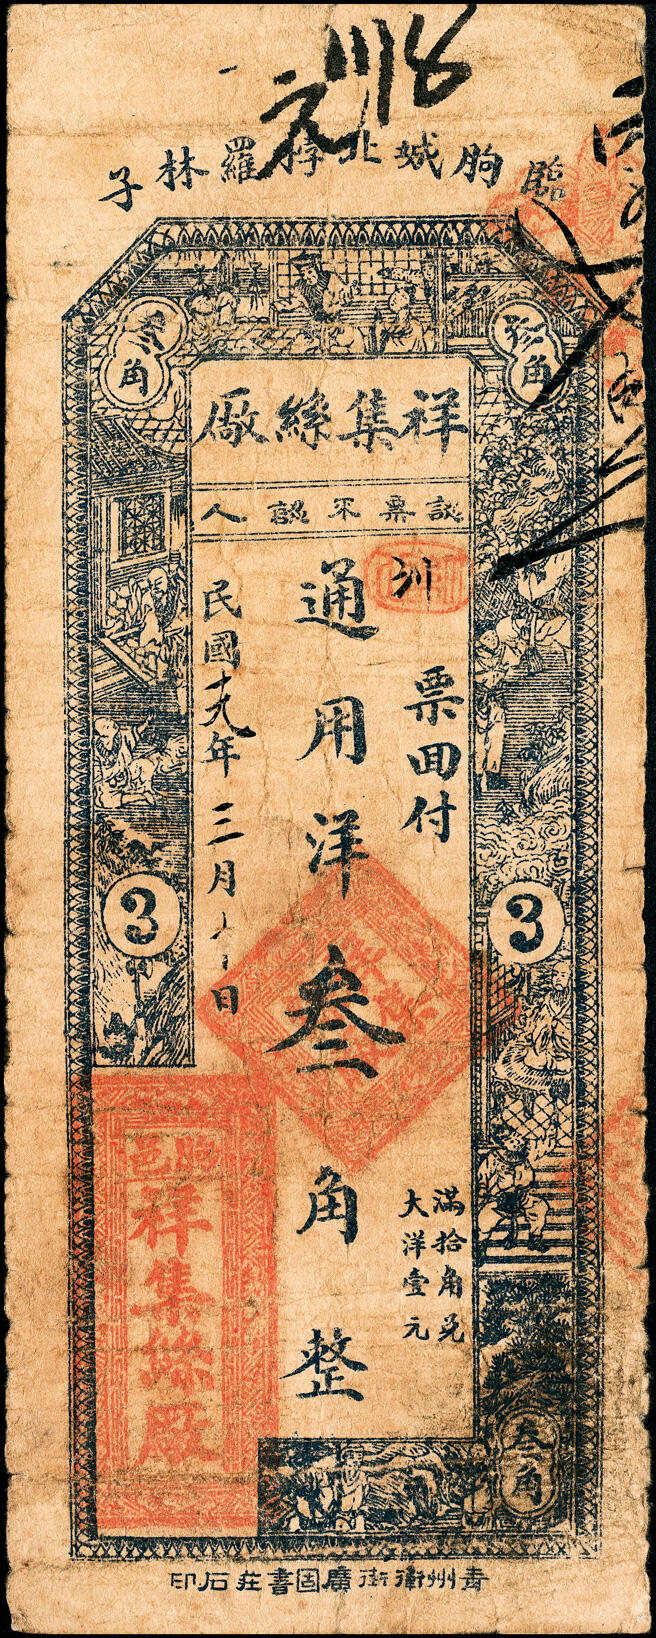 元
臨朐城北粰羅林子
叁角
叁角
祥集絲廠
認票不認人
票回付
通用洋叁角整
滿拾角兑
大洋壹元
民國十九年三月 日
3
3
臨邑
祥集絲廠
叁角
青州衛街廣固書莊石印